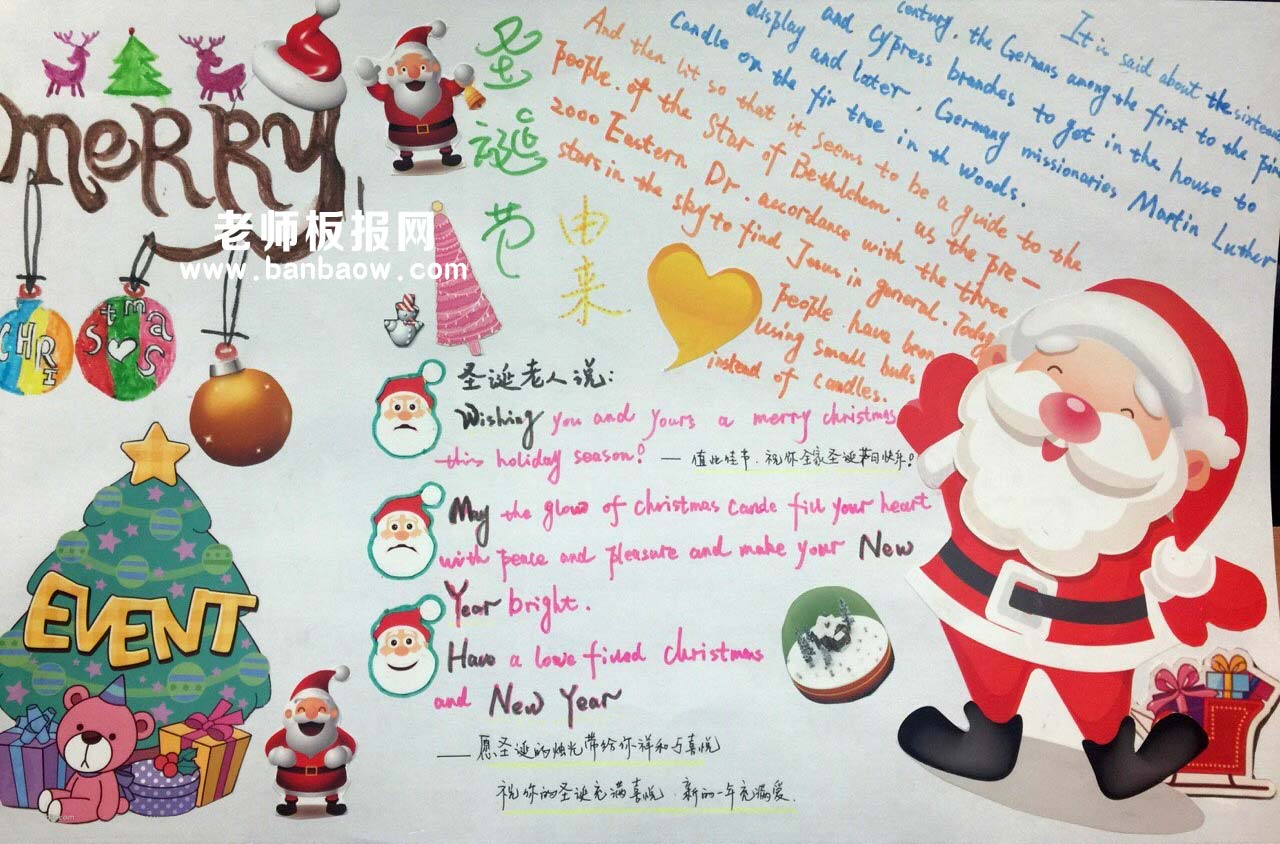 MERRY
CHRI
Stmas
老师板报网
www.banbaow.com
圣诞节
由来
It is said about the sixteenth
century, the Germans among the first to the pine
and cypress branches to get in the house to
display and later, Germany missionaries Martin Luther
Candle on the fir tree in th woods.
And then lit so that it seems to be a guide to the
people. of the Star of Bethlehem. as the pre-
2000 Eastern Dr. accordance with the three
stars in the sky to find Jesus in general. Today
people have been
using small bulbs
instead of candles.
圣诞老人说:
Wishing you and yours a merry christmas
this holiday season!
— 值此佳节.祝你全家圣诞节日快乐!
May the glow of christmas cande fill your heart
with peace and pleasure and make your New
Year bright.
Have a love filled christmas
and New Year
— 愿圣诞的烛光带给你祥和与喜悦
祝你的圣诞充满喜悦.新的一年充满爱.
EVENT